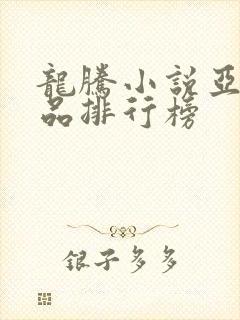 龍騰小説亞
品排行榜
銀子多多